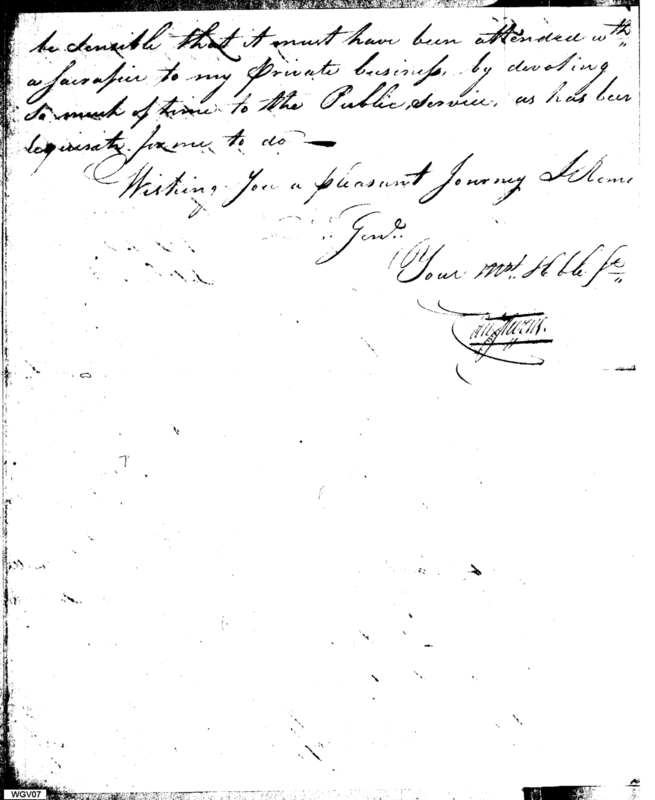 be sensible that it must have been attended wth
a Sacrafice to my Private business, by devoting
so much of time to the Public Service, as has been
requisite for me to do —
Wishing You a pleasant Journey I Rema
Gent.
Your Mot. Hble Se
WGV07